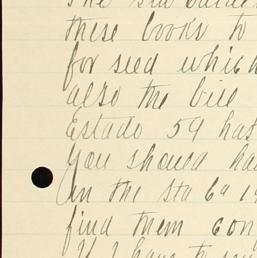 these books to
for seed which
also the bill
Estado 59 has
you should ha
in the sta 6a 19
find them con
If I have to